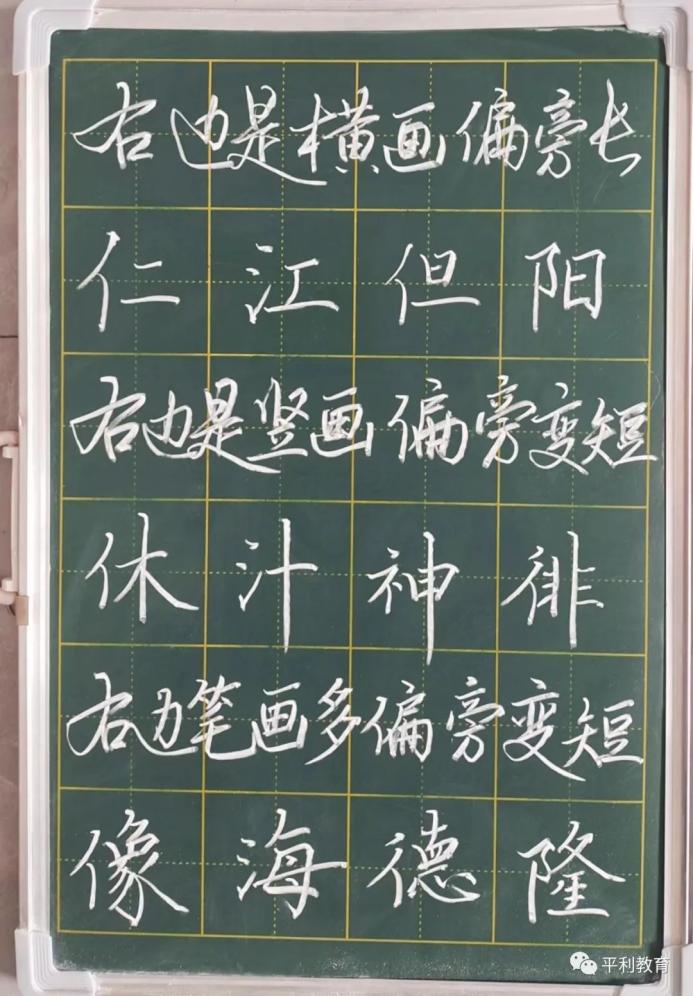 右边是横画偏旁长
仁江但阳
右边是竖画偏旁变短
休汁神徘
右边笔画多偏旁变短
像海德隆
平利教育